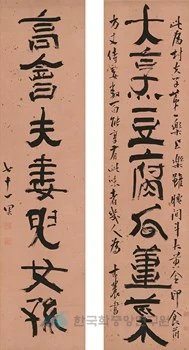 此爲村夫子第一樂上樂雖腰間斗大黃金印食前
大烹豆腐瓜薑菜
方丈侍妾數百能享有此味者幾人爲 古農書
高會夫妻兒女孫
七十一果
한국학중앙연구원